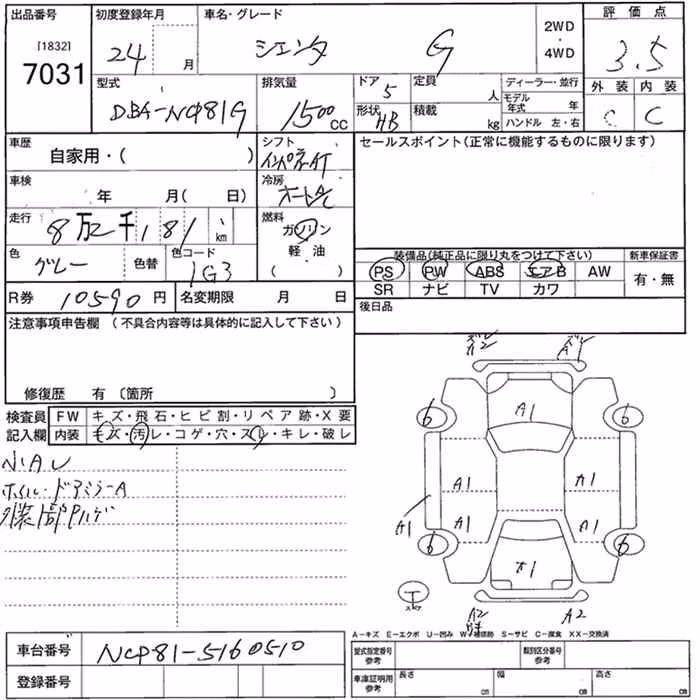 出品番号 初度登録年月 車名・グレード 2WD ・ 4WD 評価点
[1832]
7031 24 月 シエンタ G 3.5
型式 排気量 ドア 5 定員 人 ディーラー・並行 外装 内装
DBA-NCP81G 1500 CC 形状 HB 積載 kg モデル年式 年 C C
ハンドル 左・右
車歴 自家用・( ) シフト インパネAT セールスポイント(正常に機能するものに限ります)
車検 年 月( 日) 冷房 オートAC
走行 8万2千181 km 燃料 ガソリン
軽油
( )
色 グレー 色替 色コード 1G3
装備品(純正品に限り丸をつけて下さい) 新車保証書
PS PW ABS エアB AW 有・無
SR ナビ TV カワ
R券 10590 円 名変期限 月 日 後日品
注意事項申告欄 (不具合内容等は具体的に記入して下さい)
修復歴 有 〔箇所 〕
検査員 FW キズ・飛石・ヒビ割・リペア跡・X要
記入欄 内装 キズ・汚レ・コゲ・穴・スレ・キレ・破レ
小A U
ホイル・ドアミラーA
外装1部Pハゲ
A1
6 6
A1 A1
A1 A1 A1
6 6
A1
A2 A2
A-キズ E-エクボ U-凹み W-補修跡 S-サビ C-腐食 XX-交換済
車台番号 NCP81-5160510 型式指定番号 参考 類別区分番号 参考
登録番号 車庫証明用 参考 長さ cm 幅 cm 高さ cm